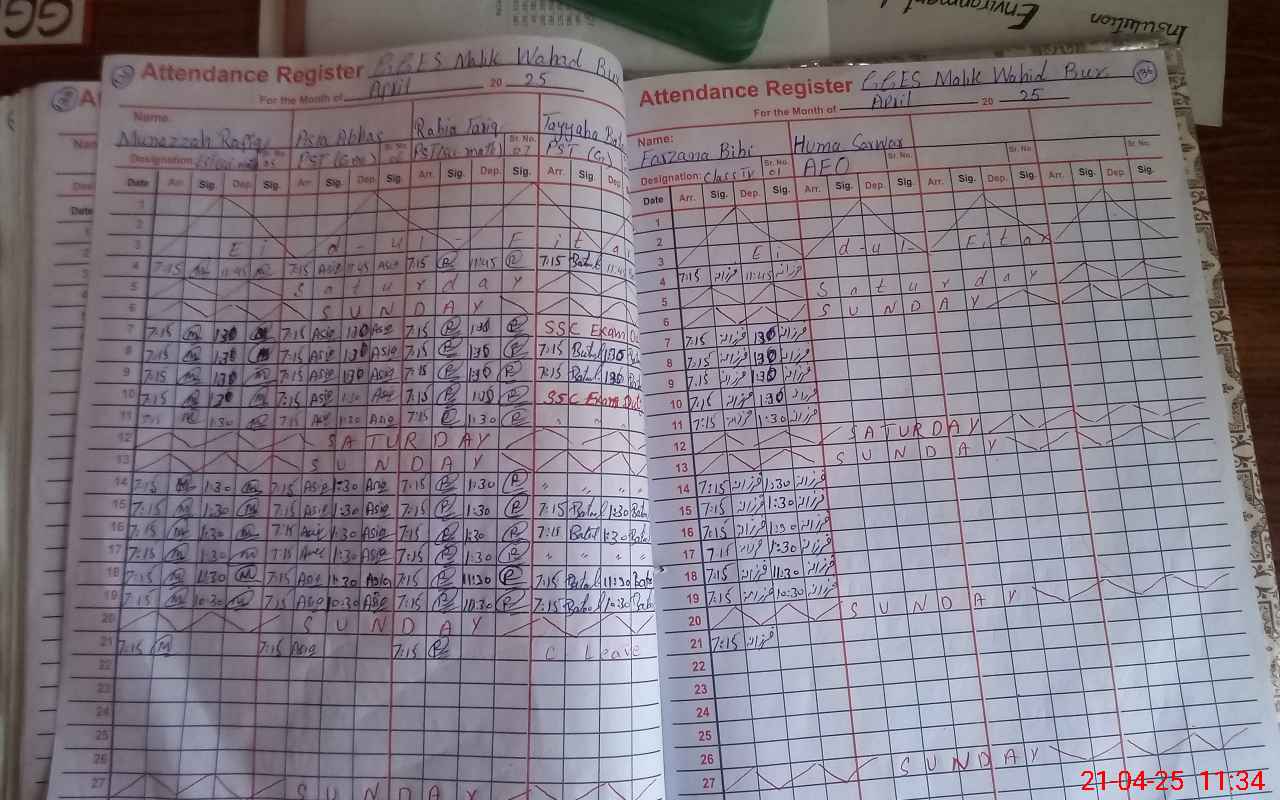 Institution
Environment
Attendance Register GGES Malik Wahad Bux
For the Month of April 20 25
Name:
Munazzah Asia Abbas Rabia Tariq Tayyaba
Designation: PST (Gen) Sr. No. PST (Sci math) Sr. No. 07 PST (G)
Date Arr. Sig. Dep. Sig. Arr. Sig. Dep. Sig. Arr. Sig. Dep. Sig. Arr. Sig. Dep.
1
2
3 E i d - u l - F i t a
4 7:15 11:45 7:15 Asia 11:45 Asia 7:15 R 11:45 R 7:15 Batul 11:45
5 S a t u r d a y
6 S U N D A Y
7 7:15 m 1:30 m 7:15 Asia 1:30 Asia 7:15 R 1:30 R SSC Exam
8 7:15 m 1:30 m 7:15 Asia 1:30 Asia 7:15 R 1:30 R 7:15 Batul 1:30
9 7:15 m 1:30 m 7:15 Asia 1:30 Asia 7:15 R 1:30 R 7:15 Batul 1:30
10 7:15 m 1:30 m 7:15 Asia 1:30 Asia 7:15 R 1:30 R SSC Exam
11 7:15 1:30 7:15 Asia 1:30 Asia 7:15 R 1:30 R " " "
12 S A T U R D A Y
13 S U N D A Y
14 7:15 m 1:30 m 7:15 Asia 1:30 Asia 7:15 R 1:30 R " " " "
15 7:15 m 1:30 m 7:15 Asia 1:30 Asia 7:15 R 1:30 R 7:15 Batul 1:30
16 7:15 m 1:30 m 7:15 Asia 1:30 Asia 7:15 R 1:30 R 7:15 Batul 1:30
17 7:15 m 1:30 m 7:15 Asia 1:30 Asia 7:15 R 1:30 R " " " "
18 7:15 m 11:30 m 7:15 Asia 11:30 Asia 7:15 R 11:30 R 7:15 Batul 11:30
19 7:15 m 10:30 m 7:15 Asia 10:30 Asia 7:15 R 10:30 R 7:15 Batul 10:30
20 S U N D A Y
21 7:15 m 7:15 Asia 7:15 R C - Leave
22
23
24
25
26
27 S U N D A Y
Attendance Register GGES Malik Wahid Bux 136
For the Month of April 20 25
Name: Farzana Bibi Huma Sarwar
Designation: Class IV Sr. No. 01 AEO Sr. No. Sr. No. Sr. No.
Date Arr. Sig. Dep. Sig. Arr. Sig. Dep. Sig. Arr. Sig. Dep. Sig. Arr. Sig. Dep. Sig.
1
2
3 Ei d-ul- Fitar
4 7:15 فرزانہ 11:45 فرزانہ
5 S a t u r d a y
6 S U N D A Y
7 7:15 فرزانہ 1:30 فرزانہ
8 7:15 فرزانہ 1:30 فرزانہ
9 7:15 فرزانہ 1:30 فرزانہ
10 7:15 فرزانہ 1:30 فرزانہ
11 7:15 فرزانہ 1:30 فرزانہ
12 S A T U R D A Y
13 S U N D A Y
14 7:15 فرزانہ 1:30 فرزانہ
15 7:15 فرزانہ 1:30 فرزانہ
16 7:15 فرزانہ 1:30 فرزانہ
17 7:15 فرزانہ 1:30 فرزانہ
18 7:15 فرزانہ 11:30 فرزانہ
19 7:15 فرزانہ 10:30 فرزانہ
20 S U N D A Y
21 7:15 فرزانہ
22
23
24
25
26
27 S U N D A Y
21-04-25 11:34